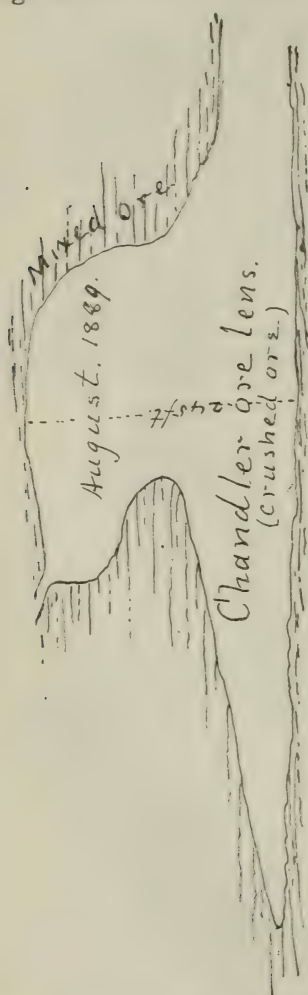 Mixed ore
August. 1889.
245ft
Chandler ore lens.
(crushed ore.)